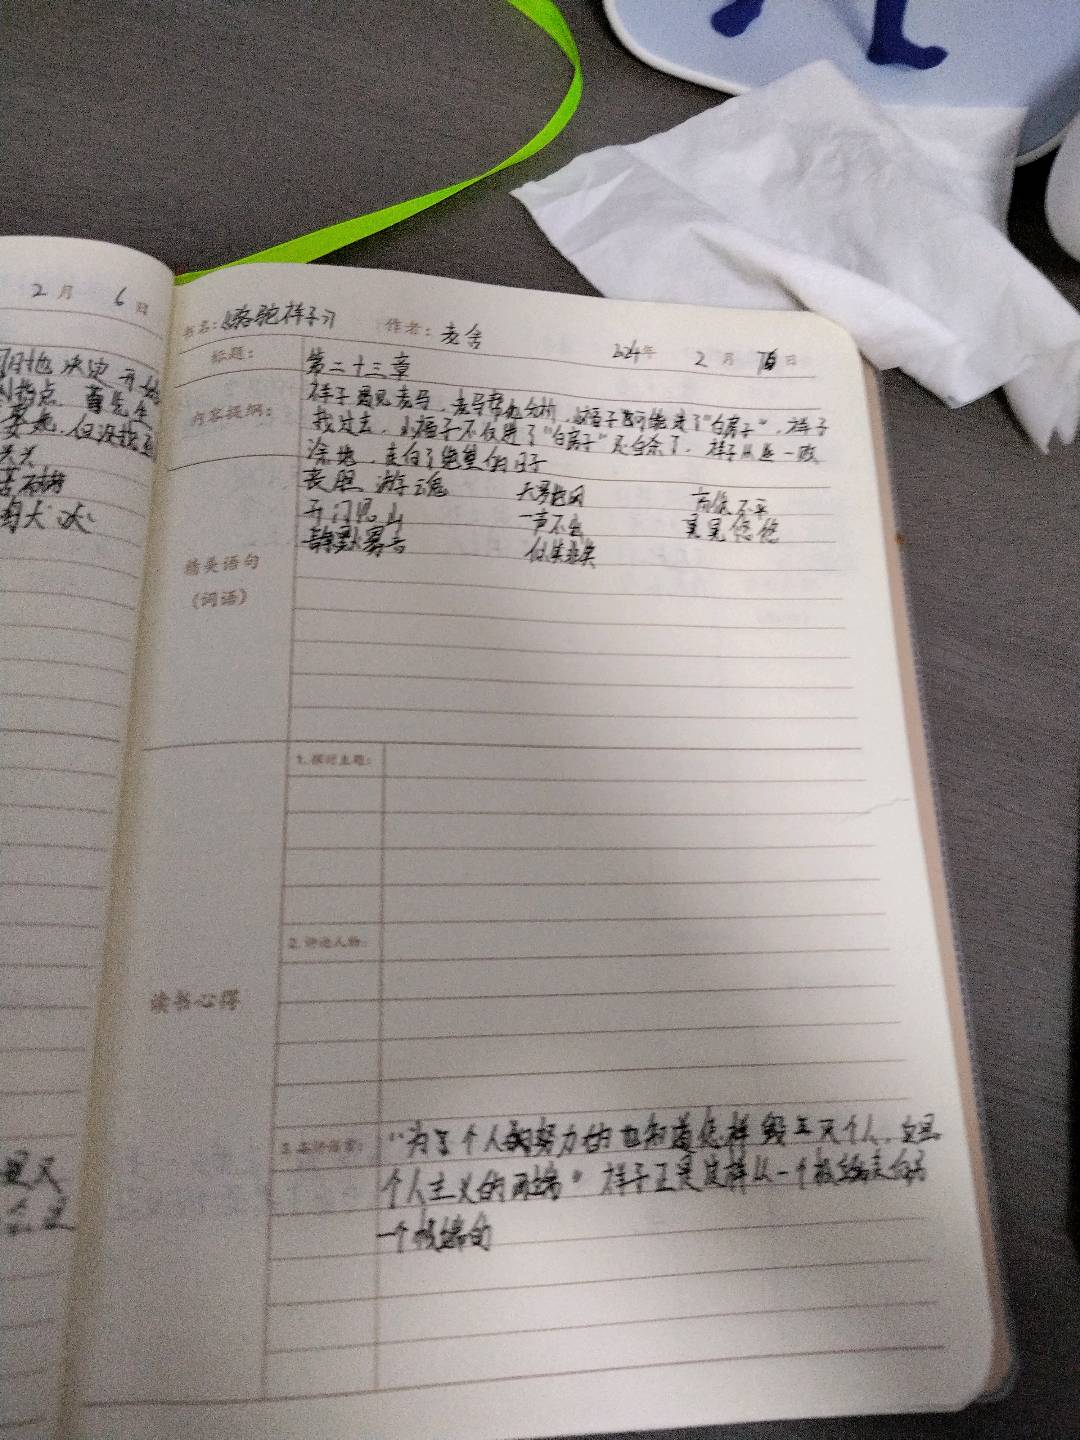 2月 6日
决定 开始
但没找到
书名:《骆驼祥子》 作者:老舍 2024年 2月 日
标题: 第二十三章
内容提纲: 祥子遇见老马,老马帮他分析,小福子可能进了"白房子",祥子
找过去,小福子不仅进了"白房子"还自杀了,祥子从此一败
涂地,走向了绝望的日子
丧胆游魂
开门见山 一声不出 晃晃悠悠
静默寡言
精美语句
(词语)
读书心得
1.探讨主题:
2.评论人物:
3.品评语言: "为个人努力的也知道怎样毁灭个人,这是
个人主义的两端"祥子正是这样从一个极端走向另
一个极端的